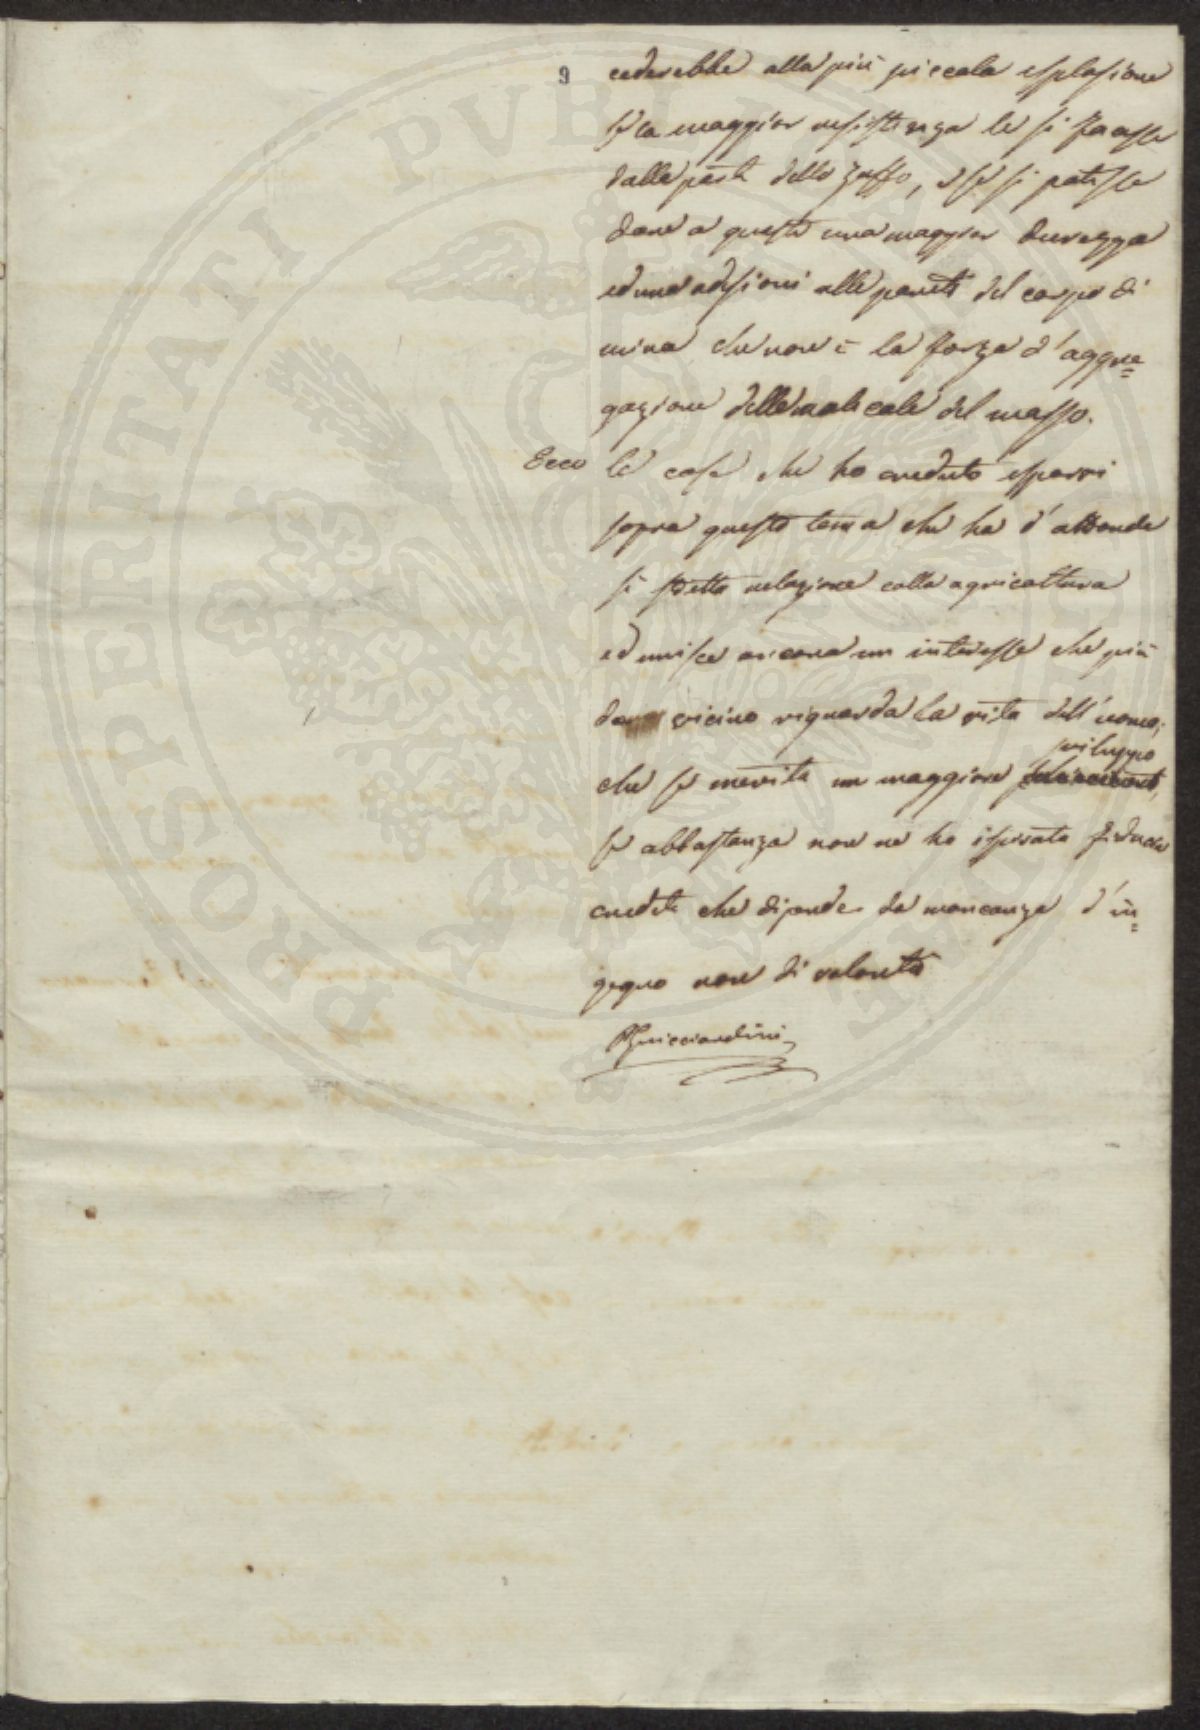 9
cederebbe alla più piccola esplosione
se la maggior resistenza le si facesse
dalla parte dello zaffo, e se si potesse
dare a questo una maggior durezza
ed una adesioni alle pareti del corpo di
mina che non è la forza d'aggre=
gazione delle molecole del masso.
Ecco le cose che ho creduto esporvi
sopra questo tema che ha d'altronde
sì stretta relazione colla agricoltura
ed unisce ancora un interesse che più
da vicino riguarda la vita dell'uomo;
sviluppo
che se merita un maggiore
se abbastanza non ne ho ispirato fiducia
credete che dipende da mancanza d'in=
gegno non di volontà
PGuicciardini
PROSPERITATI PUBLICAE AUGENDAE